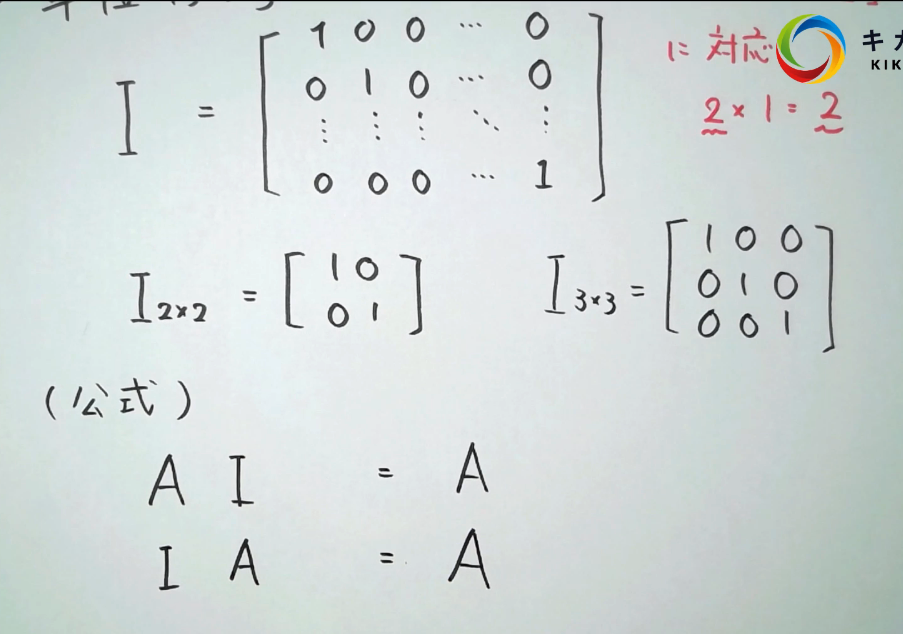 I = [ 1 0 0 ⋯ 0
0 1 0 ⋯ 0
⋮ ⋮ ⋮ ⋱ ⋮
0 0 0 ⋯ 1 ]
に対応
2 × 1 = 2
KIK
I 2×2 = [ 1 0
0 1 ]
I 3×3 = [ 1 0 0
0 1 0
0 0 1 ]
(公式)
A I = A
I A = A